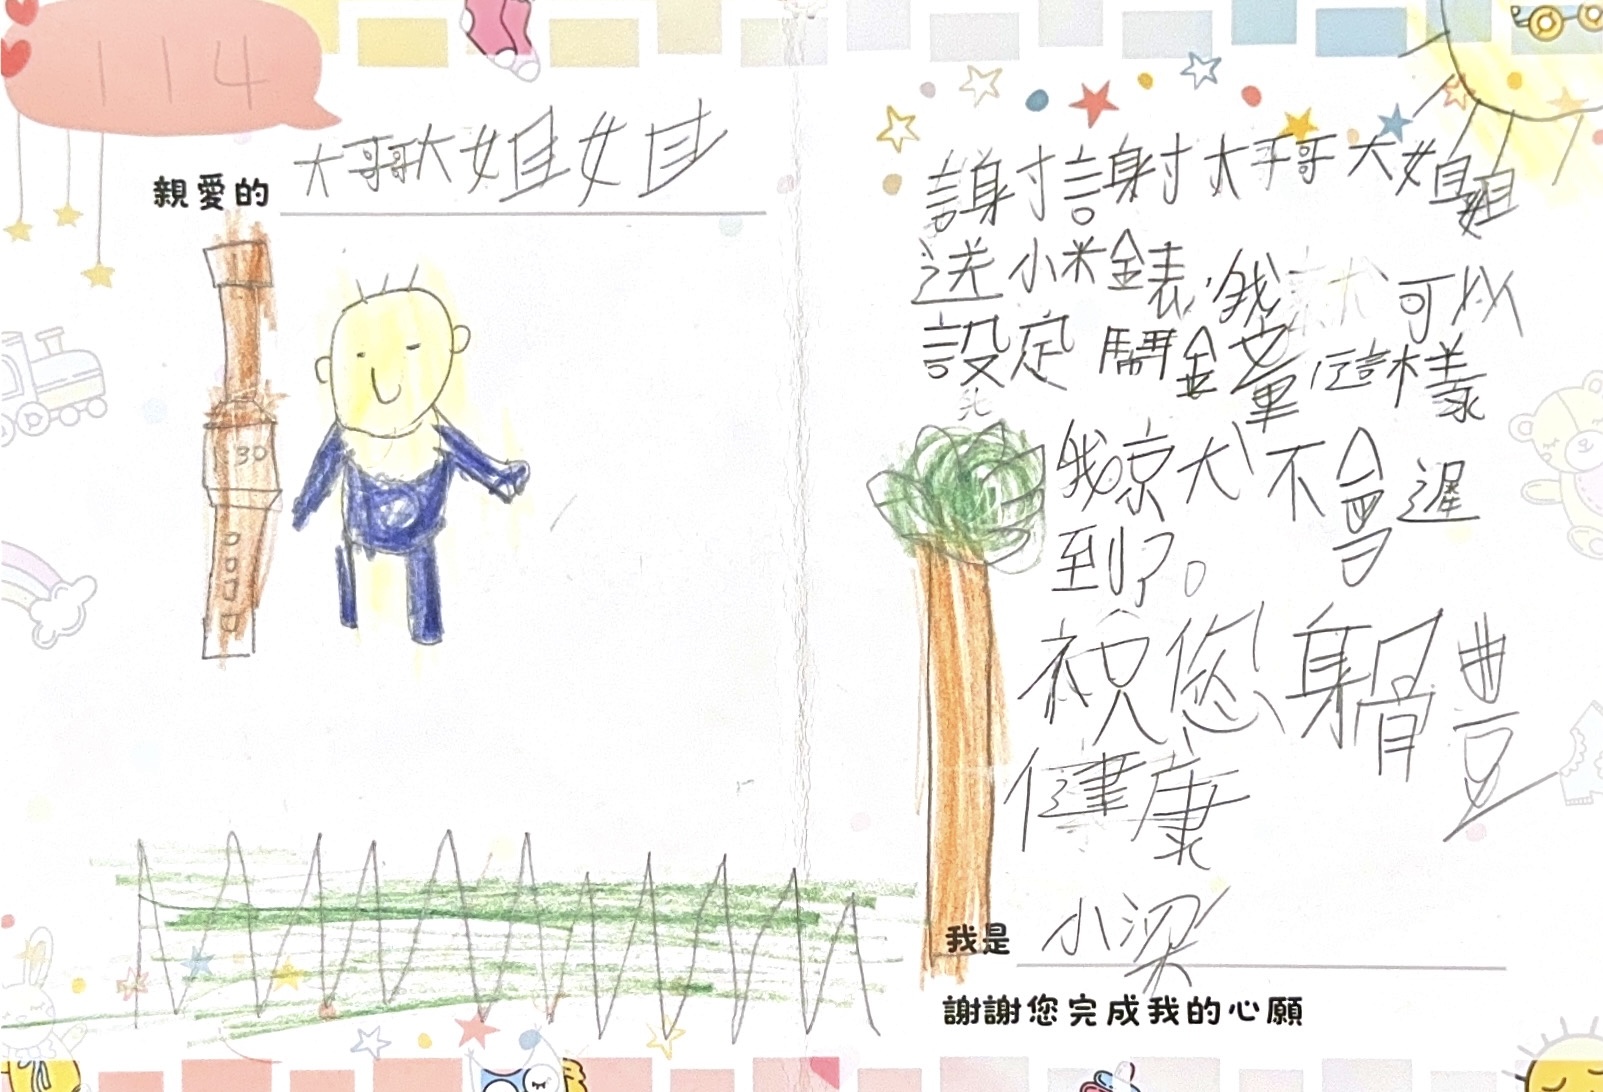 114
親愛的 大哥哥大姐姐
30
謝謝大哥哥大姐姐
送小米錶,我就可以
設定鬧鐘這樣
我就不會遲
到了。
祝您身體
健康
我是 小梁
謝謝您完成我的心願